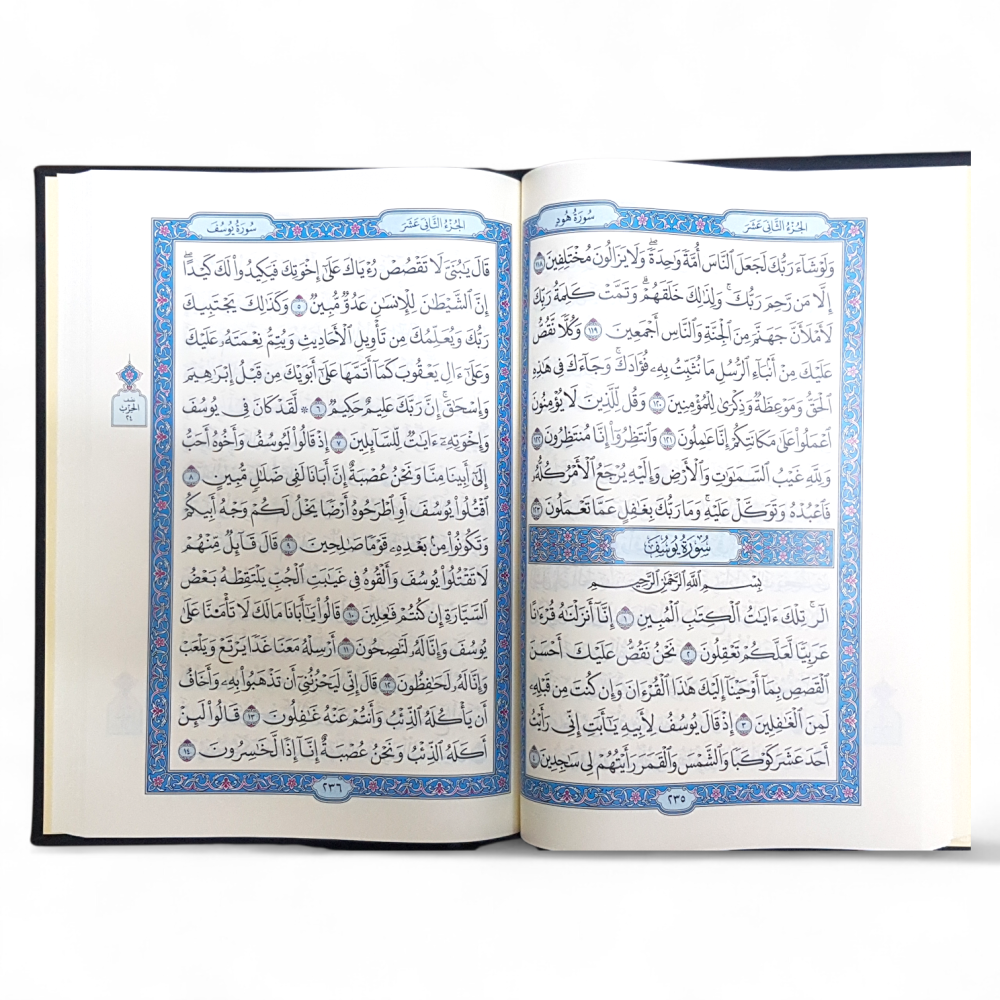 الجزء الثاني عشر
سورة هود
وَلَوْ شَآءَ رَبُّكَ لَجَعَلَ ٱلنَّاسَ أُمَّةً وَٰحِدَةً ۖ وَلَا يَزَالُونَ مُخْتَلِفِينَ ١١٨
إِلَّا مَن رَّحِمَ رَبُّكَ ۚ وَلِذَٰلِكَ خَلَقَهُمْ ۗ وَتَمَّتْ كَلِمَةُ رَبِّكَ
لَأَمْلَأَنَّ جَهَنَّمَ مِنَ ٱلْجِنَّةِ وَٱلنَّاسِ أَجْمَعِينَ ١١٩ وَكُلًّا نَّقُصُّ
عَلَيْكَ مِنْ أَنۢبَآءِ ٱلرُّسُلِ مَا نُثَبِّتُ بِهِۦ فُؤَادَكَ ۚ وَجَآءَكَ فِى هَٰذِهِ
ٱلْحَقُّ وَمَوْعِظَةٌ وَذِكْرَىٰ لِلْمُؤْمِنِينَ ١٢٠ وَقُل لِّلَّذِينَ لَا يُؤْمِنُونَ
ٱعْمَلُوا۟ عَلَىٰ مَكَانَتِكُمْ إِنَّا عَٰمِلُونَ ١٢١ وَٱنتَظِرُوٓا۟ إِنَّا مُنتَظِرُونَ ١٢٢
وَلِلَّهِ غَيْبُ ٱلسَّمَٰوَٰتِ وَٱلْأَرْضِ وَإِلَيْهِ يُرْجَعُ ٱلْأَمْرُ كُلُّهُۥ
فَٱعْبُدْهُ وَتَوَكَّلْ عَلَيْهِ ۚ وَمَا رَبُّكَ بِغَٰفِلٍ عَمَّا تَعْمَلُونَ ١٢٣
سُورَةُ يُوسُفَ
بِسْمِ ٱللَّهِ ٱلرَّحْمَٰنِ ٱلرَّحِيمِ
الٓر ۚ تِلْكَ ءَايَٰتُ ٱلْكِتَٰبِ ٱلْمُبِينِ ١ إِنَّآ أَنزَلْنَٰهُ قُرْءَٰنًا
عَرَبِيًّا لَّعَلَّكُمْ تَعْقِلُونَ ٢ نَحْنُ نَقُصُّ عَلَيْكَ أَحْسَنَ
ٱلْقَصَصِ بِمَآ أَوْحَيْنَآ إِلَيْكَ هَٰذَا ٱلْقُرْءَانَ وَإِن كُنتَ مِن قَبْلِهِۦ
لَمِنَ ٱلْغَٰفِلِينَ ٣ إِذْ قَالَ يُوسُفُ لِأَبِيهِ يَٰٓأَبَتِ إِنِّى رَأَيْتُ
أَحَدَ عَشَرَ كَوْكَبًا وَٱلشَّمْسَ وَٱلْقَمَرَ رَأَيْتُهُمْ لِى سَٰجِدِينَ ٤
٢٣٥
الجزء الثاني عشر
سورة يوسف
قَالَ يَٰبُنَىَّ لَا تَقْصُصْ رُءْيَاكَ عَلَىٰٓ إِخْوَتِكَ فَيَكِيدُوا۟ لَكَ كَيْدًا ۖ
إِنَّ ٱلشَّيْطَٰنَ لِلْإِنسَٰنِ عَدُوٌّ مُّبِينٌ ٥ وَكَذَٰلِكَ يَجْتَبِيكَ
رَبُّكَ وَيُعَلِّمُكَ مِن تَأْوِيلِ ٱلْأَحَادِيثِ وَيُتِمُّ نِعْمَتَهُۥ عَلَيْكَ
وَعَلَىٰٓ ءَالِ يَعْقُوبَ كَمَآ أَتَمَّهَا عَلَىٰٓ أَبَوَيْكَ مِن قَبْلُ إِبْرَٰهِيمَ
وَإِسْحَٰقَ ۚ إِنَّ رَبَّكَ عَلِيمٌ حَكِيمٌ ٦ ۞ لَّقَدْ كَانَ فِى يُوسُفَ
وَإِخْوَتِهِۦٓ ءَايَٰتٌ لِّلسَّآئِلِينَ ٧ إِذْ قَالُوا۟ لَيُوسُفُ وَأَخُوهُ أَحَبُّ
إِلَىٰٓ أَبِينَا مِنَّا وَنَحْنُ عُصْبَةٌ إِنَّ أَبَانَا لَفِى ضَلَٰلٍ مُّبِينٍ ٨
ٱقْتُلُوا۟ يُوسُفَ أَوِ ٱطْرَحُوهُ أَرْضًا يَخْلُ لَكُمْ وَجْهُ أَبِيكُمْ
وَتَكُونُوا۟ مِنۢ بَعْدِهِۦ قَوْمًا صَٰلِحِينَ ٩ قَالَ قَآئِلٌ مِّنْهُمْ
لَا تَقْتُلُوا۟ يُوسُفَ وَأَلْقُوهُ فِى غَيَٰبَتِ ٱلْجُبِّ يَلْتَقِطْهُ بَعْضُ
ٱلسَّيَّارَةِ إِن كُنتُمْ فَٰعِلِينَ ١٠ قَالُوا۟ يَٰٓأَبَانَا مَا لَكَ لَا تَأْمَ۫نَّا عَلَىٰ
يُوسُفَ وَإِنَّا لَهُۥ لَنَٰصِحُونَ ١١ أَرْسِلْهُ مَعَنَا غَدًا يَرْتَعْ وَيَلْعَبْ
وَإِنَّا لَهُۥ لَحَٰفِظُونَ ١٢ قَالَ إِنِّى لَيَحْزُنُنِىٓ أَن تَذْهَبُوا۟ بِهِۦ وَأَخَافُ
أَن يَأْكُلَهُ ٱلذِّئْبُ وَأَنتُمْ عَنْهُ غَٰفِلُونَ ١٣ قَالُوا۟ لَئِنْ
أَكَلَهُ ٱلذِّئْبُ وَنَحْنُ عُصْبَةٌ إِنَّآ إِذًا لَّخَٰسِرُونَ ١٤
نصف
الحزب
٢٤
٢٣٦